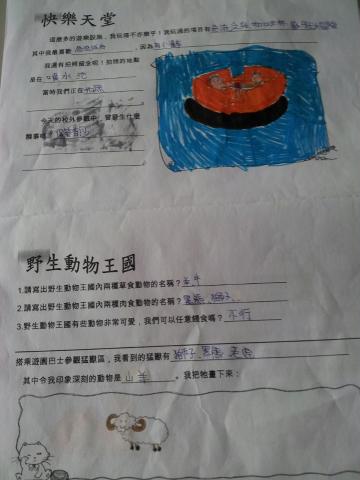 快樂天堂
這麼多的遊樂設施，我玩得不亦樂乎！我玩過的項目有
其中我最喜歡 ，因為
我還有拍照留念呢！拍照的地點
是在 噴水池
當時我們正在
今天的校外參觀中，曾發生什麼
糗事呢？
野生動物王國
1.請寫出野生動物王國內兩種草食動物的名稱？
2.請寫出野生動物王國內兩種肉食動物的名稱？黑熊、獅子
3.野生動物王國有些動物非常可愛，我們可以任意餵食嗎？不行
搭乘遊園巴士參觀猛獸區，我看到的猛獸有 獅子、黑熊、老虎
其中令我印象深刻的動物是 山羊 。我把牠畫下來：